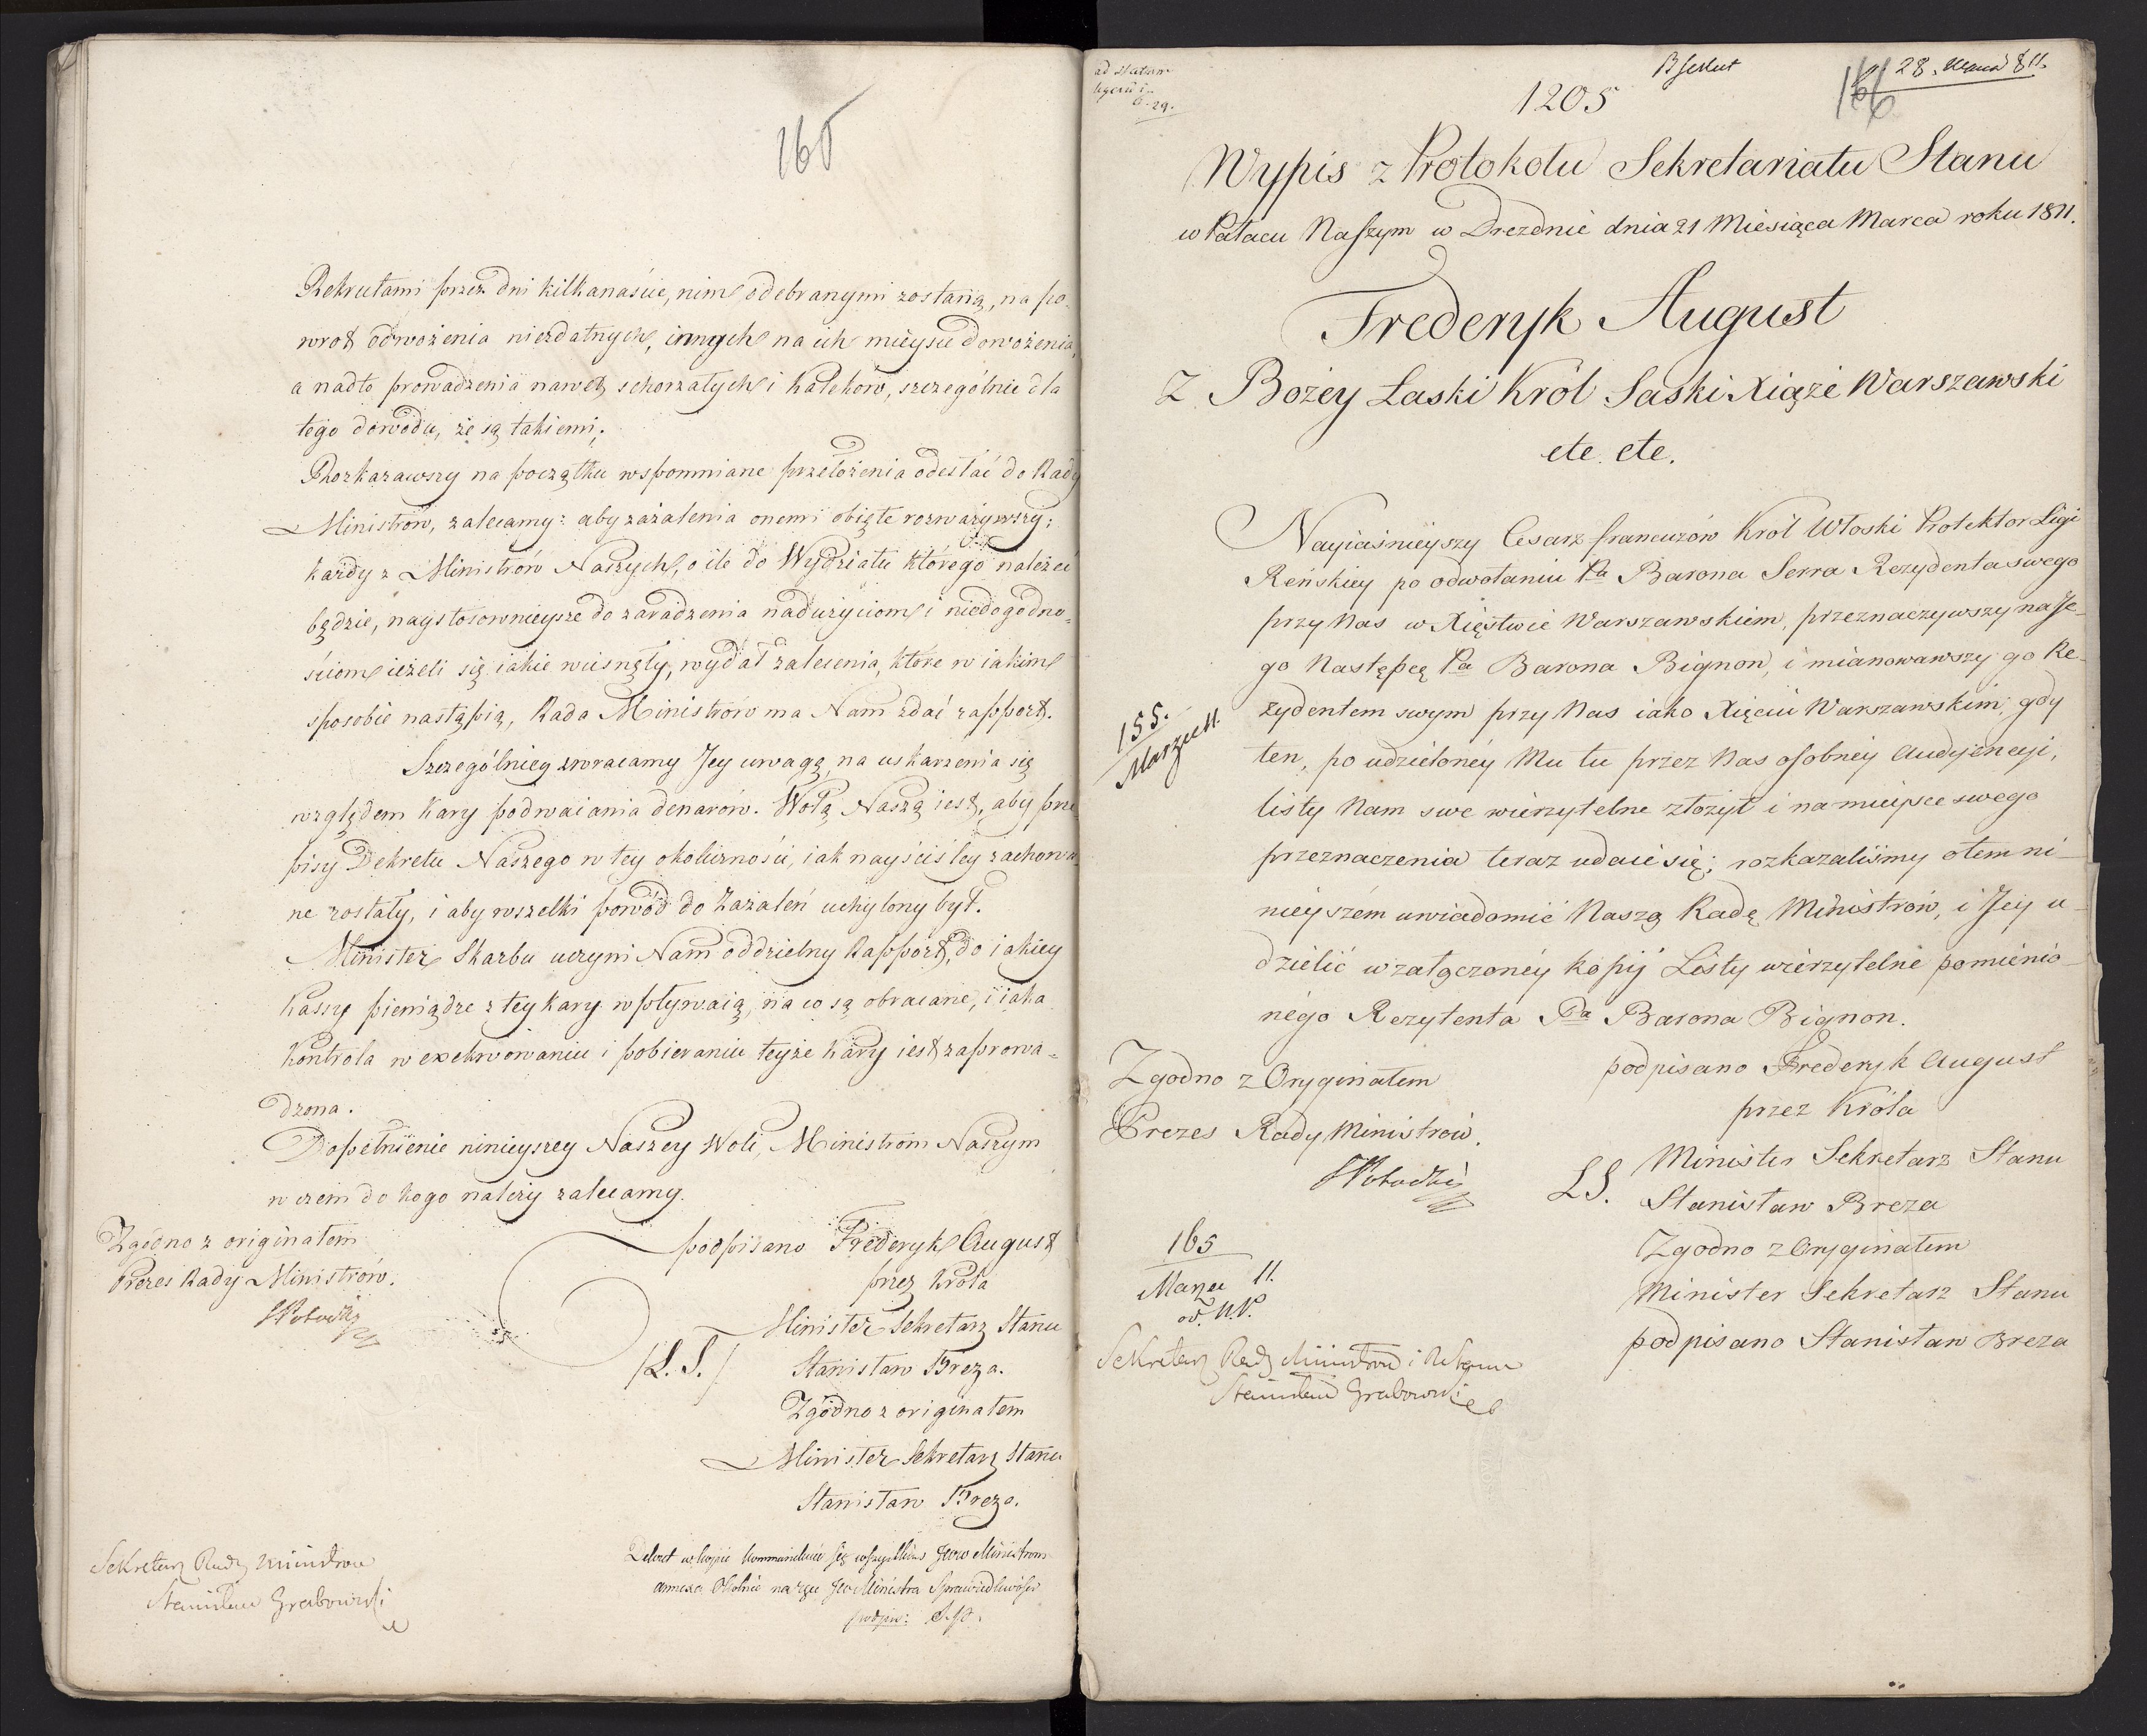 165
Rekrutami przez dni kilkanaście, nim odebranymi zostaną, na po-
wrot odwożenia niezdatnych, innych na ich mieysce dowożenia,
a nadto prowadzenia nawet schorzałych i kaleków, szczególnie dla
tego dowodu, że są takiemi;
Rozkazawszy na początku wspomniane przełożenia odesłać do Rady
Ministrów, zalecamy: aby zażalenia onemi obięte rozważywszy;
każdy z Ministrów Naszych, o ile do Wydziału którego należeć
będzie, naystosownieysze do zaradzenia nadużyciom i niedogodno=
ściom ieżeli się iakie wcisnęły, wydał zalecenia, które w iakim
sposobie nastąpią, Rada Ministrów ma Nam zdać rapport.
Szczególniey zwracamy Jey uwagę na uskarzenia się
względem kary podwaiania denarów. Wolą Naszą iest, aby prze
pisy Dekretu Naszego w tey okoliczności, iak nayściśley zachowa
ne zostały, i aby wszelki powód do Zażaleń uchylony był.
Minister Skarbu uczyni Nam oddzielny Rapport, do iakiey
Kassy pieniądze z tey kary wpływaią, na co są obracane, i iaka
kontrola w exekwowaniu i pobieraniu teyże kary iest zaprowa=
dzona.
Dopełnienie ninieyszey Naszey Woli, Ministrom Naszym
w czem do kogo należy zalecamy.
Zgodno z originałem
Prezes Rady Ministrów.
podpisano Frederyk August
przez Króla
Minister Sekretarz Stanu
/L. S./ Stanisław Breza.
Zgodno z originałem
Minister Sekretarz Stanu
Stanisław Breza.
Sekretarz Rady Ministrow
Stanisław Grabowski
Dekret w kopii wszystkim Ministrom
na ręce Ministra Sprawiedliwości
podpis:
ad
29.
1205
166
28. Marca 811.
Wypis z Protokołu Sekretariatu Stanu
w Pałacu Naszym w Dreznie dnia 21 Miesiąca Marca roku 1811.
Frederyk August
Z Bożey Łaski Król Saski Xiąże Warszawski
etc. etc.
Nayiaśnieyszy Cesarz francuzów Król Włoski Protektor Ligi
Reńskiey po odwołaniu Pa Barona Serra Rezydenta swego
przy Nas w Xięstwie Warszawskiem, przeznaczywszy na Je-
go Następcę Pa Barona Bignon, i mianowawszy go Re-
zydentem swym przy Nas iako Xięciu Warszawskim; gdy
ten, po udzieloney Mu tu przez Nas osobney Audyencyi,
listy Nam swe wierzytelne złożył i na mieysce swego
przeznaczenia teraz udaie się; rozkazaliśmy o tem ni-
nieyszém uwiadomić Naszą Radę Ministrów, i Jey u-
dzielić w załączoney kopij Listy wierzytelne pomienio-
nego Rezytenta Pa Barona Bignon.
155.
Marzec 11.
Zgodno z Oryginałem
Prezes Rady Ministrów.
podpisano Frederyk August
przez Króla
Minister Sekretarz Stanu
LS. Stanisław Breza
Zgodno z Oryginałem
Minister Sekretarz Stanu
podpisano Stanisław Breza
165
Marzec 11.
Sekretarz Rady Ministrow i
Stanisław Grabowski